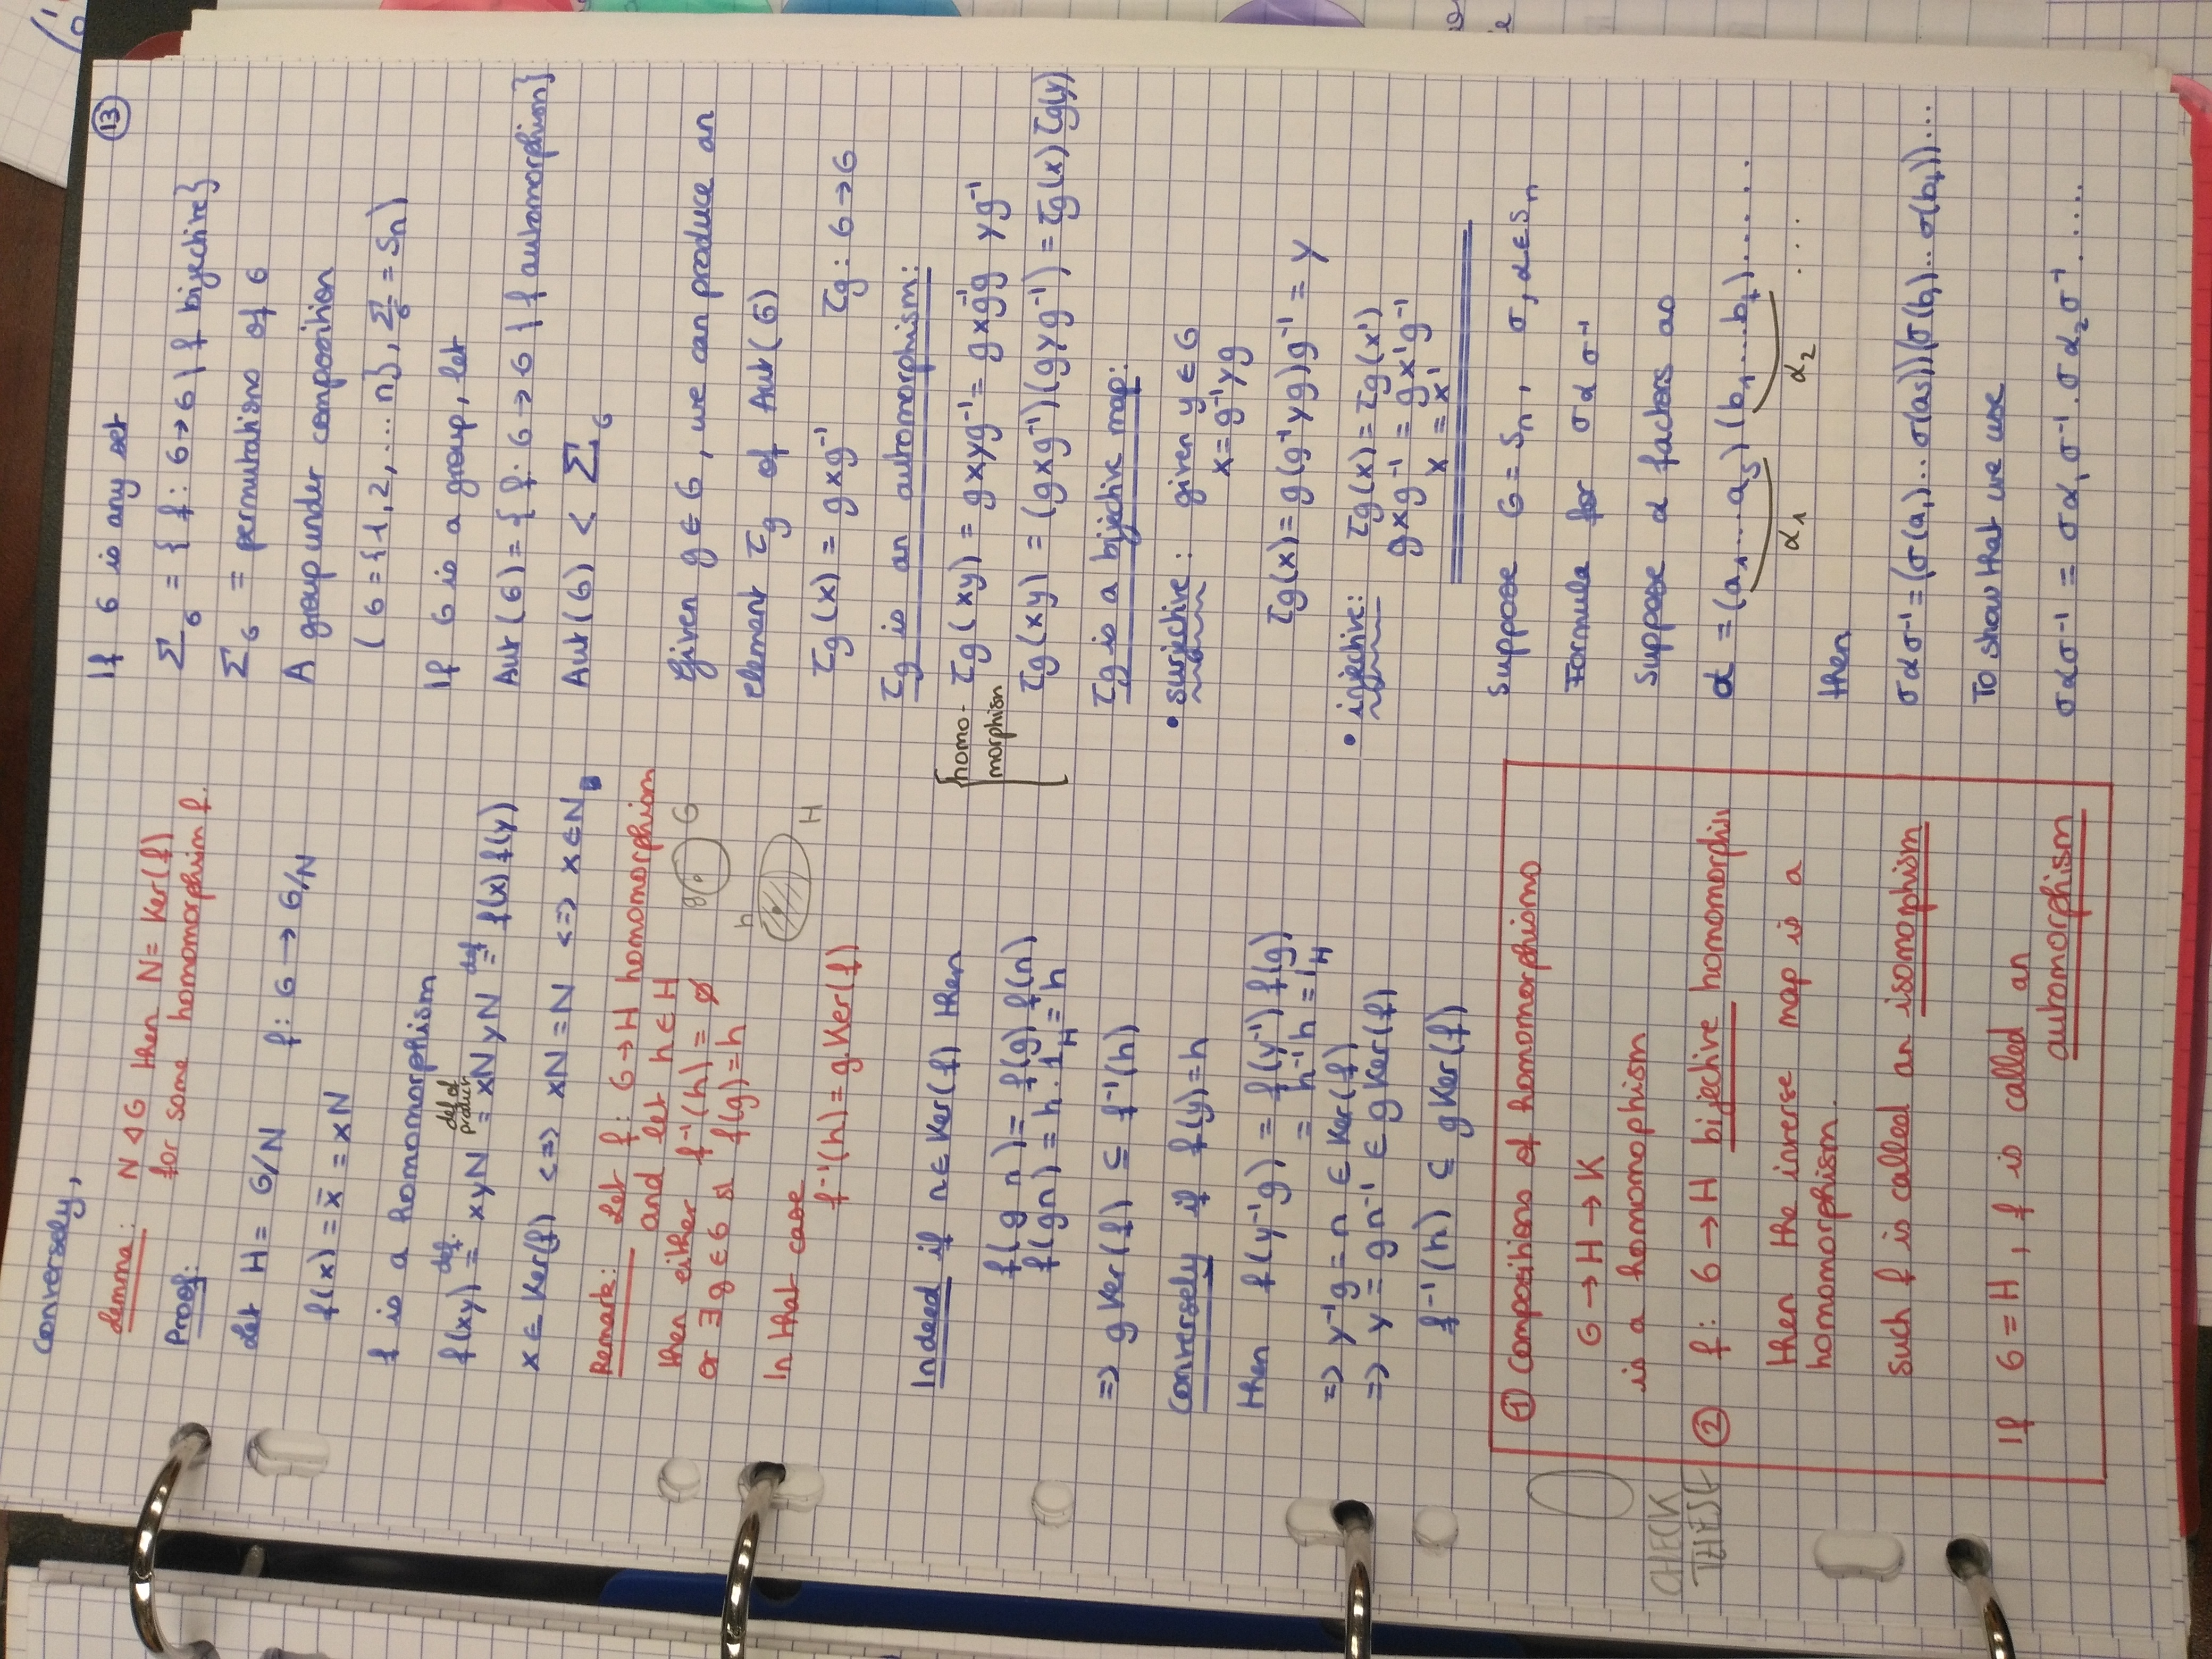 Conversely,
Lemma: N ◁ G then N = Ker(f)
for some homomorphism f.
Proof:
Let H = G/N f: G → G/N
f(x) = x̄ = xN
f is a homomorphism
f(xy) =(def.) xyN =(def of product) xN yN =(def) f(x) f(y)
x ∈ Ker(f) <=> xN = N <=> x ∈ N
Remark: Let f: G → H homomorphism
and let h ∈ H
then either f⁻¹(h) = ∅
or ∃ g ∈ G st f(g) = h
In that case
f⁻¹(h) = g.Ker(f)
g G
h H
Indeed if n ∈ Ker(f) then
f(g n) = f(g) f(n)
f(gn) = h . 1_H = h
=> g Ker(f) ⊆ f⁻¹(h)
Conversely if f(y) = h
then f(y⁻¹g) = f(y⁻¹) f(g)
= h⁻¹h = 1_H
=> y⁻¹g = n ∈ Ker(f)
=> y = gn⁻¹ ∈ g Ker(f)
f⁻¹(h) ⊆ g Ker(f)
CHECK
THESE
① Compositions of homomorphisms
G → H → K
is a homomorphism
② f: G → H bijective homomorphis
then the inverse map is a
homomorphism.
Such f is called an isomorphism
If G = H, f is called an
automorphism
⑬
If G is any set
Σ_G = { f: G → G | f bijective}
Σ_G = permutations of G
A group under composition
(G = {1, 2, .... n}, Σ_G = Sn)
If G is a group, let
Aut(G) = { f: G → G | f automorphism}
Aut(G) < Σ_G
Given g ∈ G, we can produce an
element τg of Aut(G)
τg(x) = g x g⁻¹ τg: G → G
τg is an automorphism:
homo-
morphism
τg(xy) = gxyg⁻¹ = gxg⁻¹g yg⁻¹
τg(xy) = (gxg⁻¹)(gyg⁻¹) = τg(x) τg(y)
τg is a bijective map:
• surjective: given y ∈ G
x = g⁻¹yg
τg(x) = g(g⁻¹yg)g⁻¹ = y
• injective: τg(x) = τg(x')
gxg⁻¹ = gx'g⁻¹
x = x'
Suppose G = Sn, σ, α ∈ Sn
Formula for σασ⁻¹
Suppose α factors as
α = (a₁...a_s)(b₁...b_t)......
α₁ α₂ ...
then
σασ⁻¹ = (σ(a₁)..σ(a_s))(σ(b₁)..σ(b_t))...
To show that we use
σασ⁻¹ = σα₁σ⁻¹.σα₂σ⁻¹....